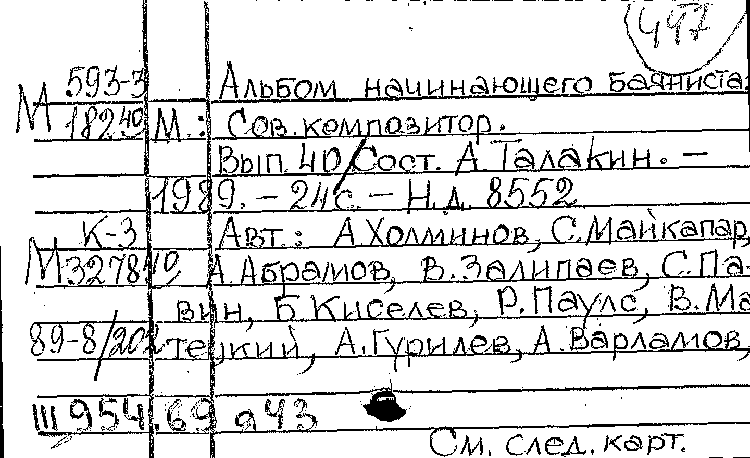 497
593-3 Альбом начинающего баяниста.
М 18249 М.: Сов. композитор.
Вып. 40/Сост. А. Талакин. –
1989. – 24 с. – Н.д. 8552
К-3 Авт.: А. Холминов, С. Майкапар,
М 32784 А. Абрамов, В. Залипаев, С. Па-
вин, Б. Киселев, Р. Паулс, В. Ма
89-8/202 тецкий, А. Гурилев, А. Варламов,
Ш 954.69 я43
См. след. карт.